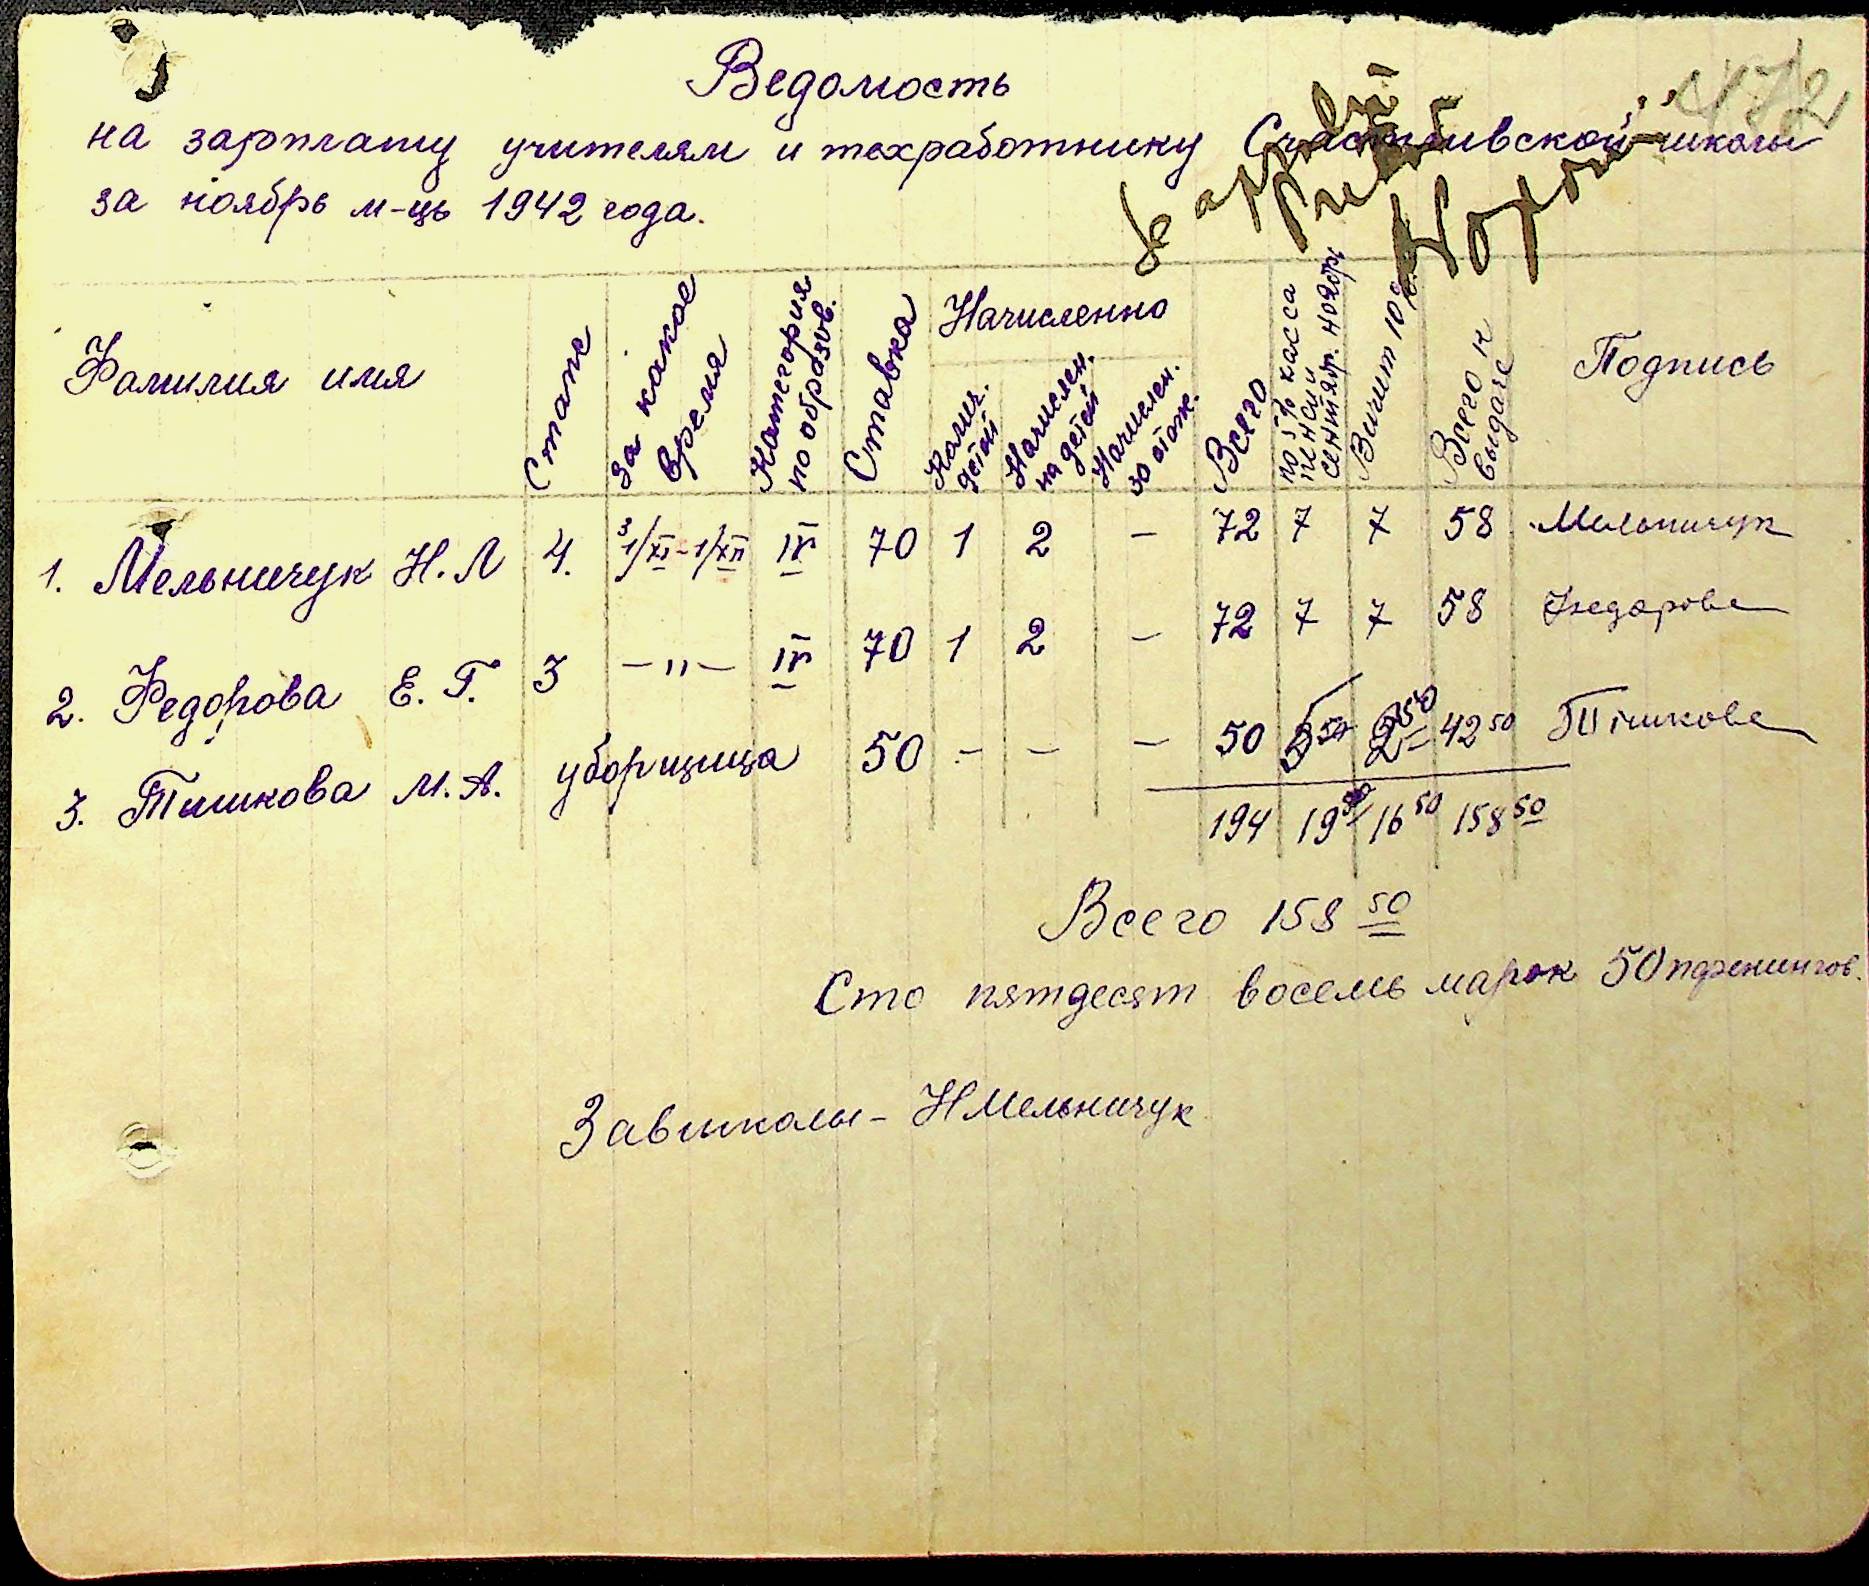 472
Ведомость
на зарплату учителям и техработнику Счастливской школы
за ноябрь м-ць 1942 года.
Фамилия имя Стаж За какое время Категория по образов. Ставка Начисленно Колич. детей Начислен. на детей Начислен. за стаж. Всего по 5% касса пенсии сентябр. ноябрь Вичит 10% Всего к выдаче Подпись
1. Мельничук Н. Л 4. 1/XI-1/XII IV 70 1 2 - 72 7 7 58 Мельничук
2. Федорова Е. Г. 3 -"- IV 70 1 2 - 72 7 7 58 Федорова
3. Тишкова М. А. уборщица 50 - - - 50 2 50 42 50 Тишкова
194 19 16 50 158 50
Всего 158 50
Сто пятдесят восемь марок 50 пфенингов.
Завшколы - НМельничук